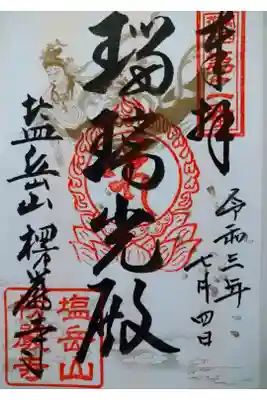 奉拝
令和三年
七月四日
瑠璃光殿
塩岳山 楞厳寺
塩岳山
楞厳寺